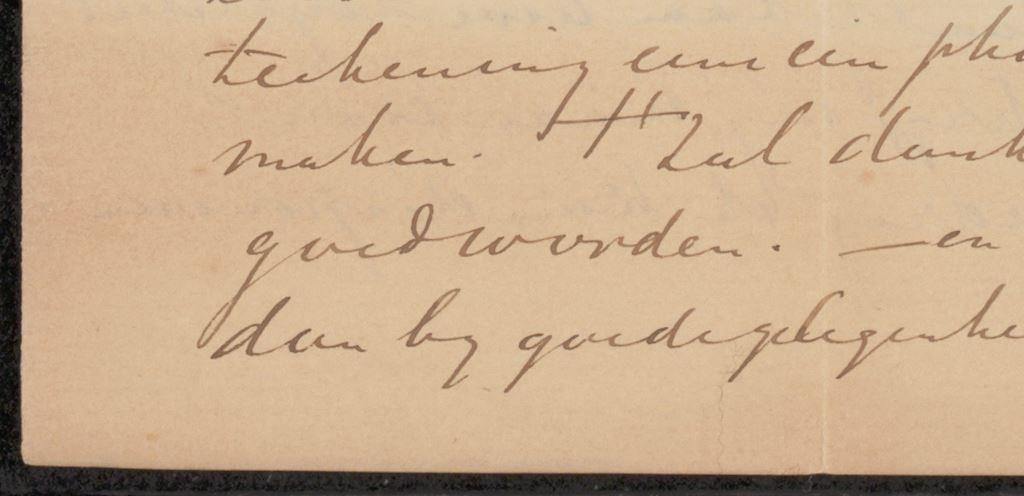 teekening eene een pho
maken. Het zal dank
goed worden. – en
dan by goede gelegenhe